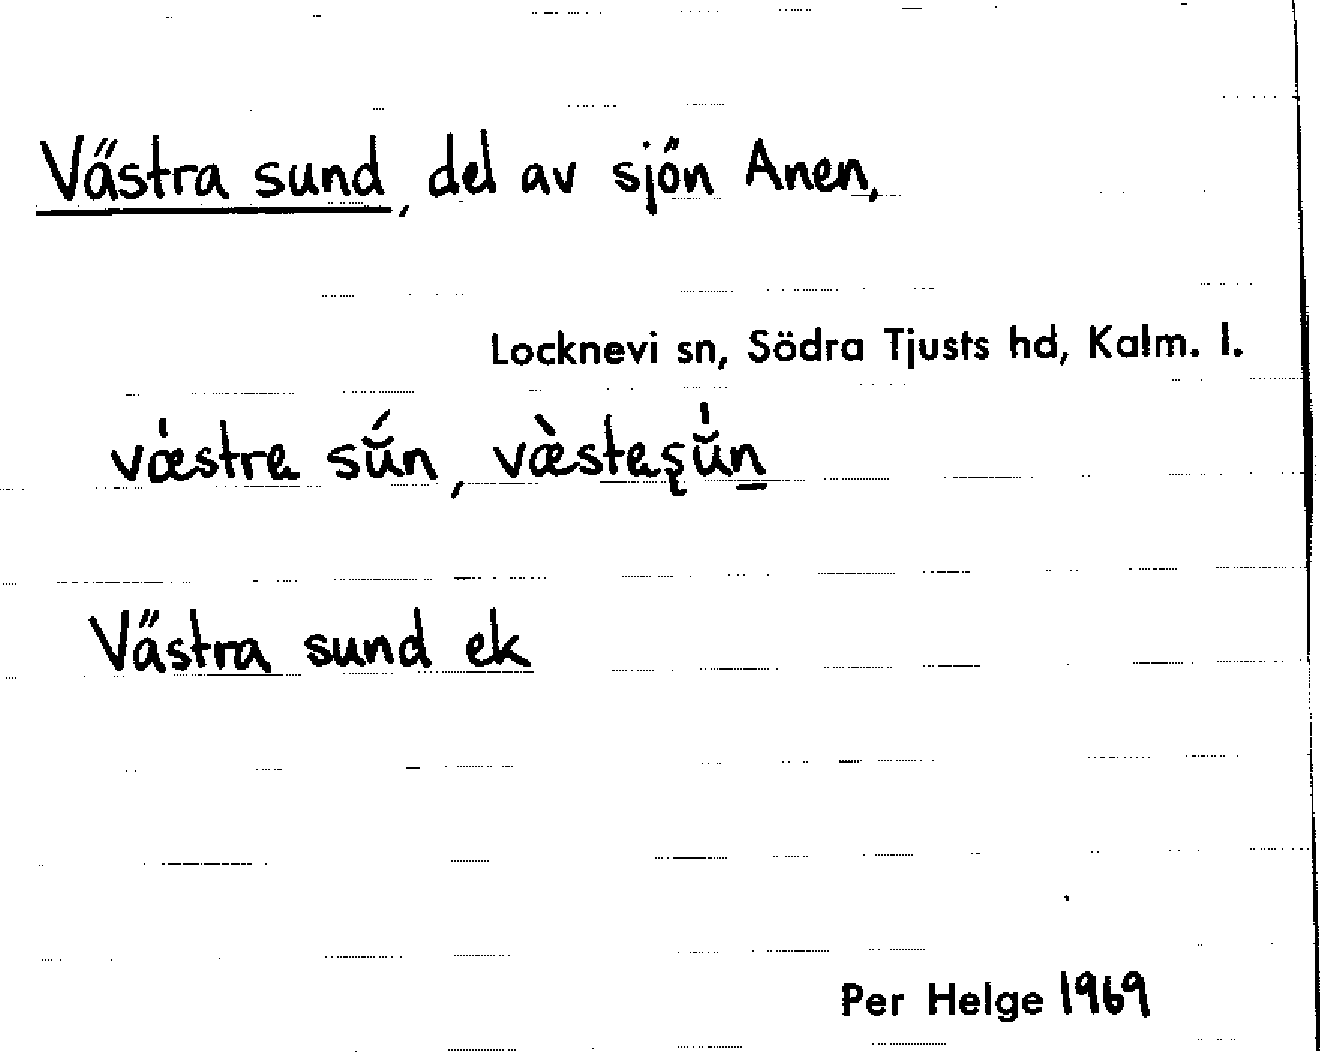 Västra sund, del av sjön Anen,
Locknevi sn, Södra Tjusts hd, Kalm. l.
vǽstre sŭ́n, væ̀steʂŭ̍n̲
Västra sund ek
Per Helge 1969